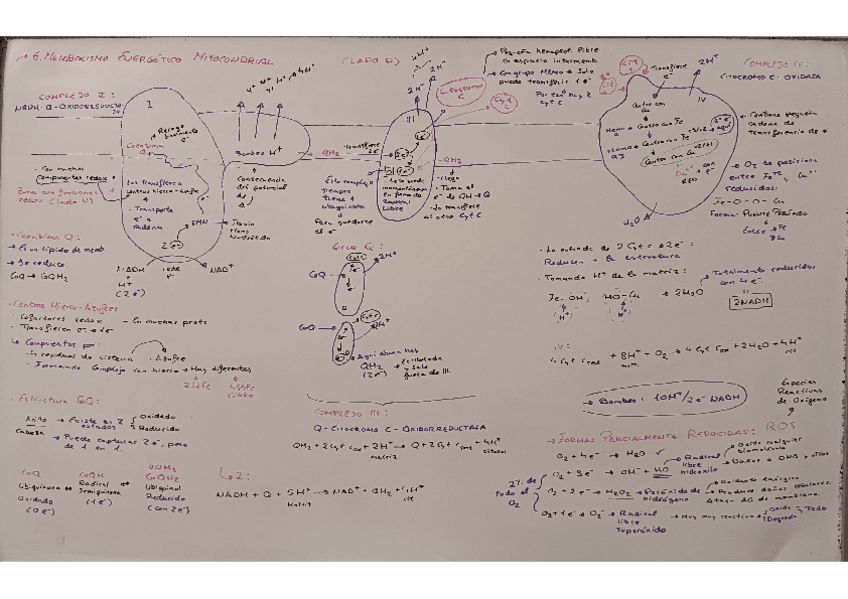 6. Metabolismo Energético Mitocondrial
(Lado P)
Complejo I:
NADH-Q-Oxidorreducto
I
Coenzima
Q
Bombeo H⁺
QH₂
Transfiere
2e⁻
III
4H⁺
2H⁺
Citocromo
C
Cyt C
→ Pequeña hemoprot. libre
en espacio intermemb.
→ Con grupo Hemo → Solo
puede transferir 1 e⁻
Por eso hay 2
Cyt C
Transfiere
e⁻
2H⁺
IV
Complejo IV:
Citocromo C-Oxidasa
→ Contiene pequeña
cadena de
transferencia de e⁻
Centro con
Cu
Hemo → Centro con Fe
a
Hemo → Centro con Fe
a3
Centro con Cu
H₂O
→ O₂ se posiciona
entre Fe y Cu
reducidos:
Fe-O-O-Cu
Forma: Puente Peróxido
Entre → Fe
→ Cu
· Con muchos
componentes redox
Zona con funciones
redox (Lado N)
Los transfiere a
centros hierro-azufre
· Transporta
e⁻ a
cadena
2e⁻
FMN
NADH
+
H⁺
(2e⁻)
cede
e⁻
NAD⁺
Consecuencia
del potencial
de
QH₂
· Llega
· Toma el
e⁻ de QH → Q
· Lo transfiere
al otro Cyt C
Este complejo
siempre
tiene 1
ubiquinona
Para guardarse
el e⁻
· Coenzima Q:
→ Es un lípido de memb.
→ Se reduce
CoQ → CoQH₂
Ciclo Q:
Cyt C
2H⁺
CoQ →
CoQ →
Cyt C
2H⁺
Aquí ahora hay
QH₂
(2e⁻)
Es liberada
y sale
fuera de III.
· La entrada de 2 Cyt c → 2e⁻:
Reducen → la estructura
· Tomando H⁺ de la matriz:
Fe-OH
HO-Cu → 2H₂O
H⁺
H⁺
→ Totalmente reducidos
con 4e⁻
=
2NADH
· Centros Hierro-Azufre:
· Cofactores redox
· Transfieren e⁻ → 1e⁻
- En muchas prots
→ Compuestos por:
· residuos de cisteína → Azufre
· Formando complejo con hierro → Hay diferentes
2S2Fe
4S4Fe
IV:
4 Cyt C red + 8H⁺ + O₂ → 4 Cyt C ox + 2H₂O + 4H⁺
→ Bombeo: 10H⁺/2e⁻ NADH
· Estructura CoQ:
Anillo → Existe en 2
estados
→ Oxidado
→ Reducido
Cabeza
→ Puede capturar 2e⁻, pero
de 1 en 1.
Complejo III:
Q-Citocromo C-Oxidorreductasa
QH₂ + 2 Cyt C ox + 2H⁺ → Q + 2 Cyt C red + 4H⁺
matriz
citosol
Especies
Reactivas
de Oxígeno
→ Formas Parcialmente Reducidas: ROS
O₂ + 4e⁻ → H₂O ✓
O₂ + 3e⁻ → OH⁻ + HO → Radical
libre
hidroxilo
→ Oxida cualquier
biomolécula
→ Daños a DNA y otros
2% de
todo el
O₂
O₂ + 2e⁻ → H₂O₂ → Peróxido de
hidrógeno
→ Produce daños celulares:
Ataca AG de membrana.
O₂ + 1e⁻ → O₂⁻ → Radical
libre
Superóxido
→ Muy muy reactivo
→ Oxida
→ Degrada
Todo
CoQ
Ubiquinona
Oxidado
(0e⁻)
CoQH
Radical
Semiquinona
(1e⁻)
UQH₂
CoQH₂
Ubiquinol
Reducido
(con 2e⁻)
I:
NADH + Q + 5H⁺ → NAD⁺ + QH₂ + 4H⁺
Matriz